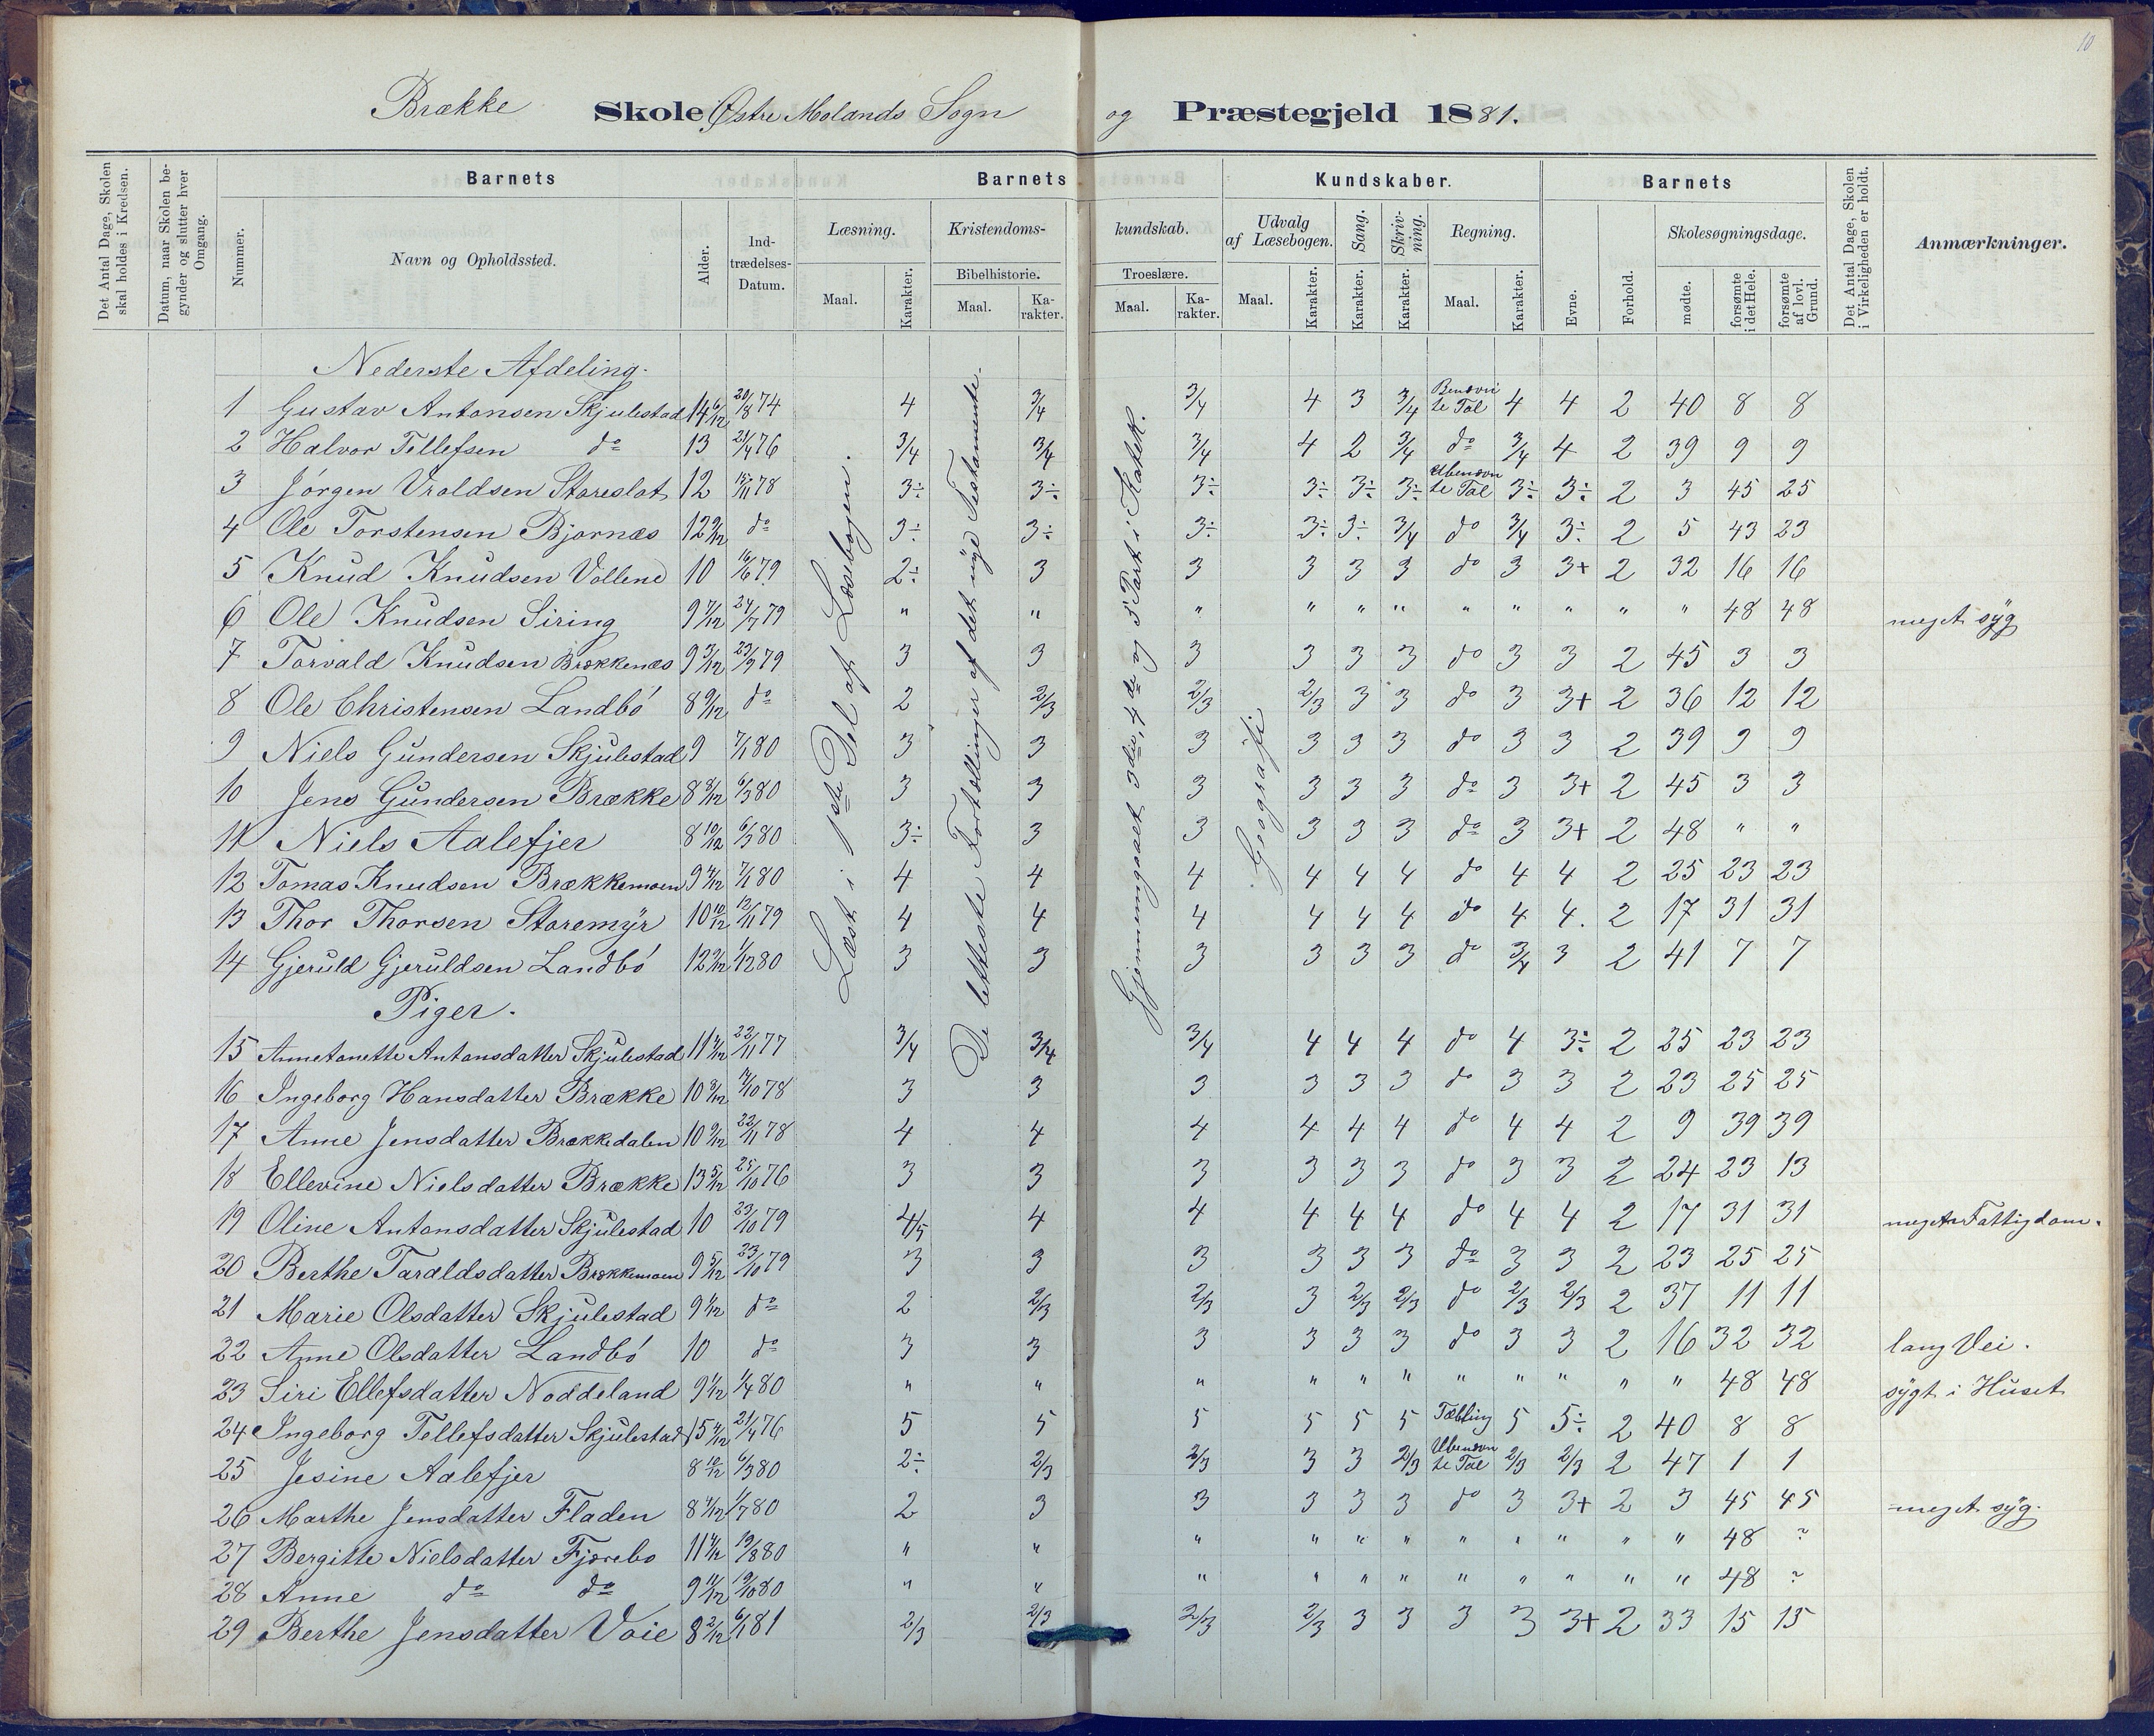 10
Brække Skole Østre Molands Sogn og Præstegjeld 1881.
Det Antal Dage, Skolen skal holdes i Kredsen.
Datum, naar Skolen begynder og slutter hver Omgang.
Barnets
Nummer.
Navn og Opholdssted.
Alder.
Indtrædelses-Datum.
Barnets
Læsning.
Maal.
Karakter.
Kristendoms-
Bibelhistorie.
Maal.
Karakter.
kundskab.
Troeslære.
Maal.
Karakter.
Kundskaber.
Udvalg af Læsebogen.
Maal.
Karakter.
Sang.
Karakter.
Skrivning.
Karakter.
Regning.
Maal.
Karakter.
Barnets
Evne.
Forhold.
Skolesøgningsdage.
mødte.
forsømte i det Hele.
forsømte af lovl. Grund.
Det Antal Dage, Skolen i Virkeligheden er holdt.
Anmærkninger.
Læst i 1ste Del af Læsebogen.
De letteste Fortællinger af det nye Testamente.
Gjennemgaaet 3die, 4de og 5 Part i Katek.
Geografi
Nederste Afdeling.
1 Gustav Antonsen Skjulestad 14 6/12 20/8 74 4 3/4 3/4 4 3 3/4 Benævnte Tal 4 4 2 40 8 8
2 Halvor Tellefsen do 13 21/4 76 3/4 3/4 3/4 4 2 3/4 do 3/4 4 2 39 9 9
3 Jörgen Vraldsen Stareslat 12 15/11 78 3÷ 3÷ 3÷ 3÷ 3÷ 3÷ Ubenævnte Tal 3÷ 3÷ 2 3 45 25
4 Ole Torstensen Bjornæs 12 9/12 do 3÷ 3÷ 3÷ 3÷ 3÷ 3/4 do 3/4 3÷ 2 5 43 23
5 Knud Knudsen Vollene 10 16/6 79 2÷ 3 3 3 3 3 do 3 3+ 2 32 16 16
6 Ole Knudsen Siring 9 7/12 24/7 79 " " " " " " " " " " " 48 48 meget syg
7 Torvald Knudsen Brækkenæs 9 3/12 23/9 79 3 3 3 3 3 3 do 3 3 2 45 3 3
8 Ole Christensen Landbö 8 9/12 do 2 2/3 2/3 2/3 3 3 do 3 3+ 2 36 12 12
9 Niels Gundersen Skjulestad 9 7/1 80 3 3 3 3 3 3 do 3 3 2 39 9 9
10 Jens Gundersen Brække 8 8/12 6/3 80 3 3 3 3 3 3 do 3 3+ 2 45 3 3
11 Niels Aalefjer 8 10/12 6/3 80 3÷ 3 3 3 3 3 do 3 3+ 2 48 " "
12 Tomas Knudsen Brækkemoen 9 4/12 7/1 80 4 4 4 4 4 4 do 4 4 2 25 23 23
13 Thor Thorsen Staremyr 10 10/12 12/11 79 4 4 4 4 4 4 do 4 4. 2 17 31 31
14 Gjeruld Gjeruldsen Landbö 12 2/12 1/12 80 3 3 3 3 3 3 do 3/4 3 2 41 7 7
Piger.
15 Annetonette Antonsdatter Skjulestad 11 4/12 22/11 77 3/4 3/4 3/4 4 4 4 do 4 3÷ 2 25 23 23
16 Ingeborg Hansdatter Brække 10 8/12 7/10 78 3 3 3 3 3 3 do 3 3 2 23 25 25
17 Anne Jensdatter Brækkedalen 10 9/12 22/11 78 4 4 4 4 4 4 do 4 4 2 9 39 39
18 Ellevine Nielsdatter Brække 13 5/12 25/10 76 3 3 3 3 3 3 do 3 3 2 24 23 13
19 Oline Antonsdatter Skjulestad 10 23/10 79 4/5 4 4 4 4 4 do 4 4 2 17 31 31 meget Fattigdom.
20 Berthe Taraldsdatter Brækkemoen 9 5/12 23/10 79 3 3 3 3 3 3 do 3 3 2 23 25 25
21 Marie Olsdatter Skjulestad 9 4/12 do 2 2/3 2/3 3 2/3 2/3 do 2/3 2/3 2 37 11 11
22 Anne Olsdatter Landbö 10 do 3 3 3 3 3 3 do 3 3 2 16 32 32 lang Vei.
23 Siri Ellefsdatter Noddeland 9 1/12 1/4 80 " " " " " " " " " " " 48 48 sygt i Huset
24 Ingeborg Tellefsdatter Skjulestad 15 4/12 21/4 76 5 5 5 5 5 5 Tælling 5 5÷ 2 40 8 8
25 Jesine Aalefjer 8 10/12 6/3 80 2÷ 2/3 2/3 3 3 2/3 Ubenævnte Tal 2/3 2/3 2 47 1 1
26 Marthe Jensdatter Fladen 8 4/12 1/7 80 2 3 3 3 3 3 do 3 3+ 2 3 45 45 meget syg.
27 Bergitte Nielsdatter Fjærebo 11 4/12 19/8 80 " " " " " " " " " " " 48 ?
28 Anne do do 9 11/12 19/10 80 " " " " " " " " " " " 48 ?
29 Berthe Jensdatter Voie 8 2/12 6/1 81 2/3 2/3 2/3 2/3 3 3 3 3 3+ 2 33 15 15